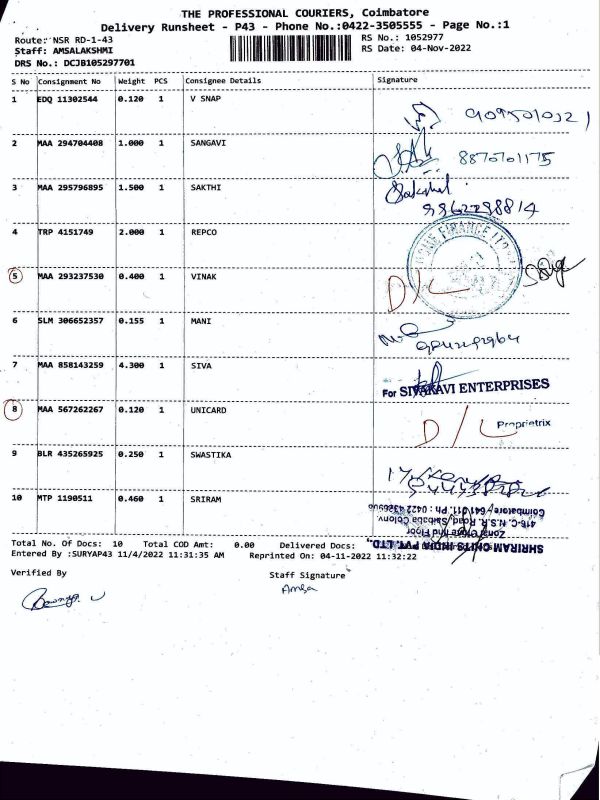 THE PROFESSIONAL COURIERS, Coimbatore
Delivery Runsheet - P43 - Phone No.:0422-3505555 - Page No.:1
Route: NSR RD-1-43
RS No.: 1052977
Staff: AMSALAKSHMI
RS Date: 04-Nov-2022
DRS No.: DCJB105297701
S No Consignment No Weight PCS Consignee Details Signature
1 EDQ 11302544 0.120 1 V SNAP
2 MAA 294704408 1.000 1 SANGAVI 8870701175
3 MAA 295796895 1.500 1 SAKTHI Sakthi
4 TRP 4151749 2.000 1 REPCO
5 MAA 293237530 0.400 1 VINAK D/L
6 SLM 306652357 0.155 1 MANI
7 MAA 858143259 4.300 1 SIVA
For SIVAKAVI ENTERPRISES
8 MAA 567262267 0.120 1 UNICARD D/L
Proprietrix
9 BLR 435265925 0.250 1 SWASTIKA
10 MTP 1190511 0.460 1 SRIRAM
SHRIRAM CHITS INDIA PVT. LTD.,
Zonal Office IInd Floor
416-C, N.S.R. Road, Saibaba Colony
Coimbatore - 641 011. Ph : 0422
Total No. Of Docs: 10 Total COD Amt: 0.00 Delivered Docs:
Entered By :SURYAP43 11/4/2022 11:31:35 AM Reprinted On: 04-11-2022 11:32:22
Verified By
Staff Signature
Amsa